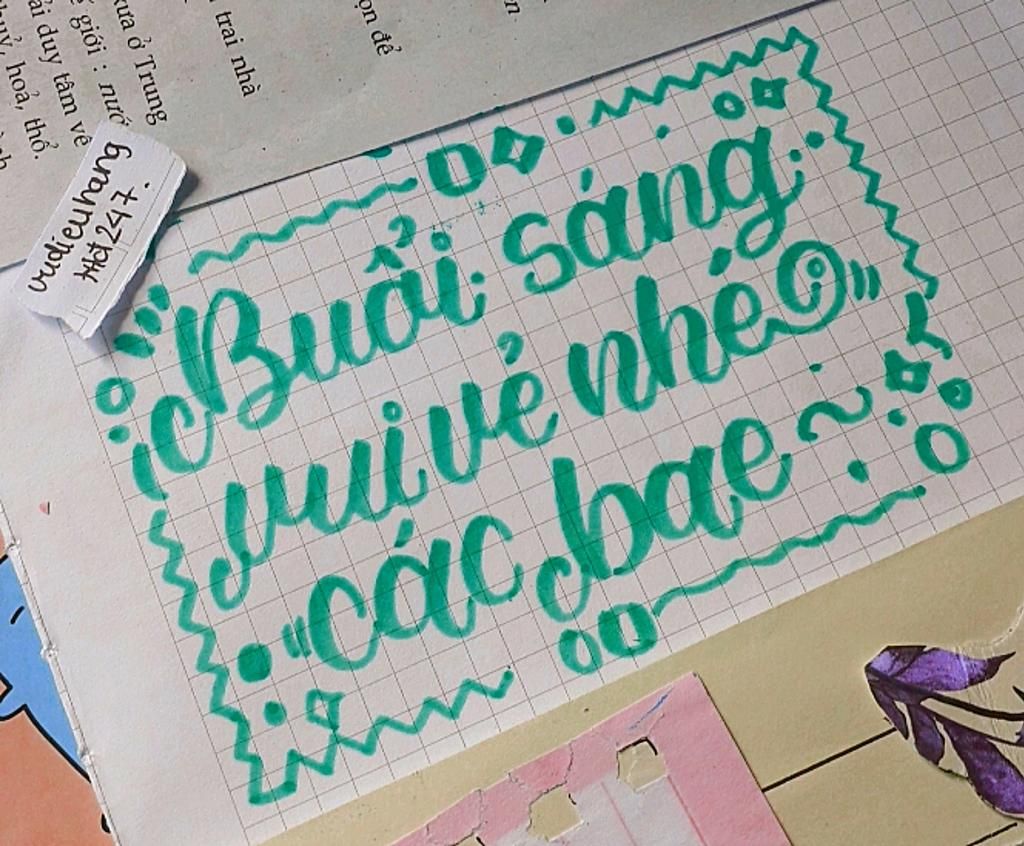 xưa ở Trung
giới : nước
ải duy tâm về
huỷ, hoả, thổ.
trai nhà
ọn để
vudieuhang
#hd247.
Buổi sáng
vui vẻ nhé
các bae ~